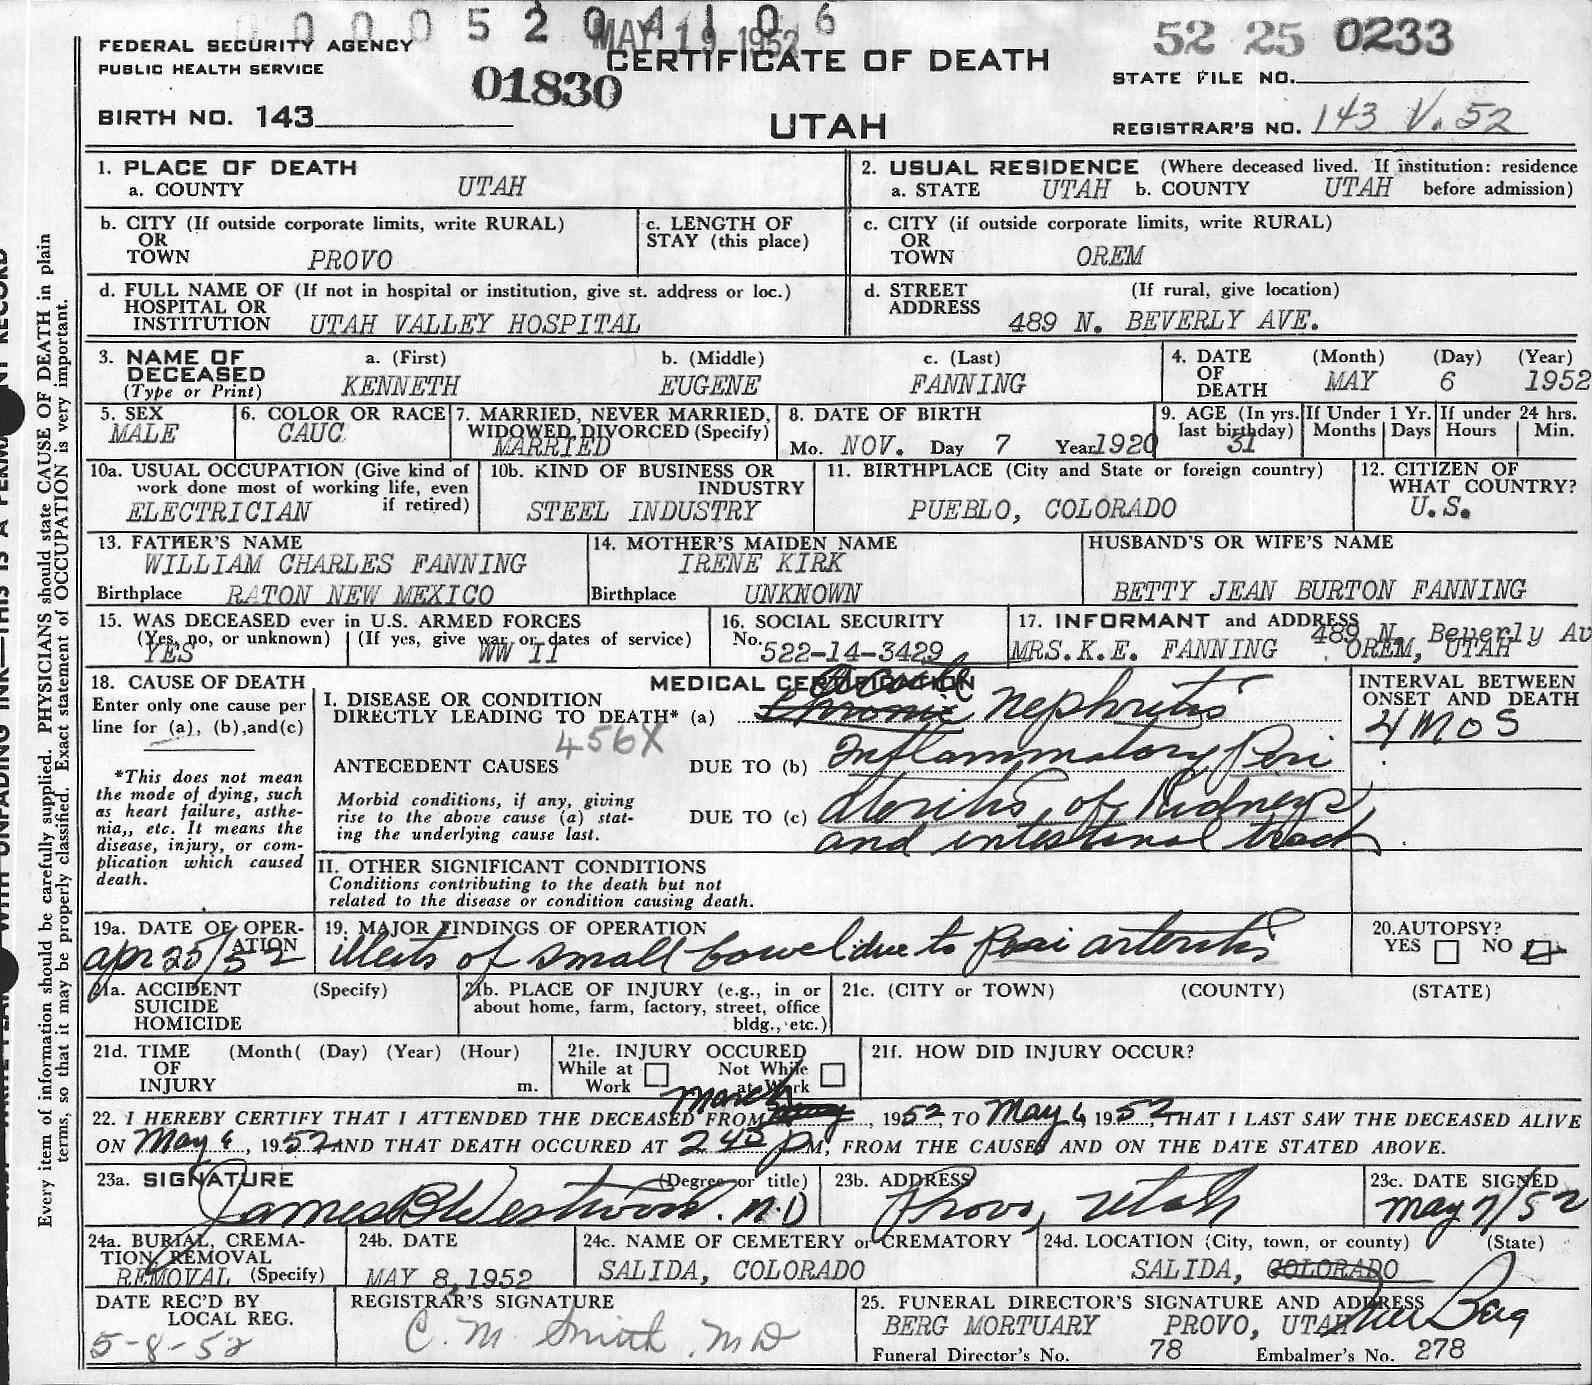 0 0 0 0 5 2 0 4 1 0 6
MAY 19 1952
52 25 0233
FEDERAL SECURITY AGENCY
PUBLIC HEALTH SERVICE
01830
CERTIFICATE OF DEATH
STATE FILE NO.
BIRTH NO. 143
UTAH
REGISTRAR'S NO. 143 V. 52
1. PLACE OF DEATH
a. COUNTY UTAH
2. USUAL RESIDENCE (Where deceased lived. If institution: residence
a. STATE UTAH b. COUNTY UTAH before admission)
b. CITY (If outside corporate limits, write RURAL)
OR
TOWN PROVO
c. LENGTH OF
STAY (this place)
c. CITY (if outside corporate limits, write RURAL)
OR
TOWN OREM
d. FULL NAME OF (If not in hospital or institution, give st. address or loc.)
HOSPITAL OR
INSTITUTION UTAH VALLEY HOSPITAL
d. STREET (If rural, give location)
ADDRESS
489 N. BEVERLY AVE.
3. NAME OF a. (First) b. (Middle) c. (Last)
DECEASED
(Type or Print) KENNETH EUGENE FANNING
4. DATE (Month) (Day) (Year)
OF
DEATH MAY 6 1952
5. SEX
MALE
6. COLOR OR RACE
CAUC
7. MARRIED, NEVER MARRIED,
WIDOWED, DIVORCED (Specify)
MARRIED
8. DATE OF BIRTH
Mo. NOV. Day 7 Year 1920
9. AGE (In yrs.
last birthday)
31
If Under 1 Yr.
Months Days
If under 24 hrs.
Hours Min.
10a. USUAL OCCUPATION (Give kind of
work done most of working life, even
if retired)
ELECTRICIAN
10b. KIND OF BUSINESS OR
INDUSTRY
STEEL INDUSTRY
11. BIRTHPLACE (City and State or foreign country)
PUEBLO, COLORADO
12. CITIZEN OF
WHAT COUNTRY?
U.S.
13. FATHER'S NAME
WILLIAM CHARLES FANNING
Birthplace RATON NEW MEXICO
14. MOTHER'S MAIDEN NAME
IRENE KIRK
Birthplace UNKNOWN
HUSBAND'S OR WIFE'S NAME
BETTY JEAN BURTON FANNING
15. WAS DECEASED ever in U.S. ARMED FORCES
(Yes, no, or unknown) (If yes, give war or dates of service)
YES WW II
16. SOCIAL SECURITY
No. 522-14-3429
17. INFORMANT and ADDRESS
489 N. Beverly Av
MRS.K.E. FANNING OREM, UTAH
18. CAUSE OF DEATH
Enter only one cause per
line for (a), (b),and(c)
*This does not mean
the mode of dying, such
as heart failure, asthe-
nia,, etc. It means the
disease, injury, or com-
plication which caused
death.
MEDICAL CERTIFICATION
I. DISEASE OR CONDITION
DIRECTLY LEADING TO DEATH* (a) Acute Chronic nephritis
456X
ANTECEDENT CAUSES DUE TO (b) Inflammatory Peri
Morbid conditions, if any, giving
rise to the above cause (a) stat-
ing the underlying cause last.
DUE TO (c) ateritis of Kidneys
and intestinal tract
INTERVAL BETWEEN
ONSET AND DEATH
4 MOS
II. OTHER SIGNIFICANT CONDITIONS
Conditions contributing to the death but not
related to the disease or condition causing death.
19a. DATE OF OPER-
ATION
apr 25/52
19. MAJOR FINDINGS OF OPERATION
illeits of small bowel due to Peri arteritis
20.AUTOPSY?
YES NO
21a. ACCIDENT (Specify)
SUICIDE
HOMICIDE
21b. PLACE OF INJURY (e.g., in or
about home, farm, factory, street, office
bldg., etc.)
21c. (CITY or TOWN) (COUNTY) (STATE)
21d. TIME (Month( (Day) (Year) (Hour)
OF
INJURY m.
21e. INJURY OCCURED
While at Not While
Work at Work
21f. HOW DID INJURY OCCUR?
22. I HEREBY CERTIFY THAT I ATTENDED THE DECEASED FROM March, 1952, TO May 6 1952, THAT I LAST SAW THE DECEASED ALIVE
ON May 6, 1952 AND THAT DEATH OCCURED AT 245 PM, FROM THE CAUSES AND ON THE DATE STATED ABOVE.
23a. SIGNATURE (Degree or title)
James B Westwood. M.D
23b. ADDRESS
Provo, Utah
23c. DATE SIGNED
May 7/52
24a. BURIAL, CREMA-
TION REMOVAL
REMOVAL (Specify)
24b. DATE
MAY 8, 1952
24c. NAME OF CEMETERY or CREMATORY
SALIDA, COLORADO
24d. LOCATION (City, town, or county) (State)
SALIDA, COLORADO
DATE REC'D BY
LOCAL REG.
5-8-52
REGISTRAR'S SIGNATURE
C. M. Smith, MD
25. FUNERAL DIRECTOR'S SIGNATURE AND ADDRESS
BERG MORTUARY PROVO, UTAH Berg
Funeral Director's No. 78 Embalmer's No. 278
Every item of information should be carefully supplied. PHYSICIANS should state CAUSE OF DEATH in plain
terms, so that it may be properly classified. Exact statement of OCCUPATION is very important.
WITH UNFADING INK—THIS IS A PERMA NT RECORD